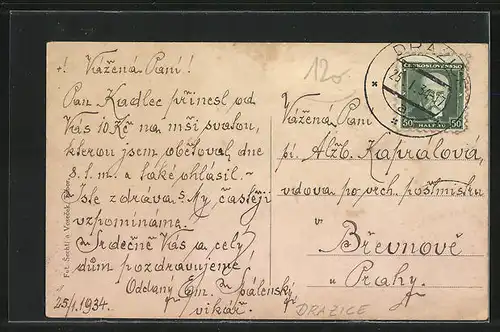 +! Vážená Paní!
Pan Kadlec přinesl od
Vás 10 Kč na mši svatou,
kterou jsem obětoval dne
8. 1. m. a také ohlásil. –
Jste zdráva? My častěji
vzpomínáme.
Srdečně Vás a celý
dům pozdravujeme
Oddaný Em. Spálenský
vikář.
25/1. 1934.
Fot. Šechtl a Voseček, Tábor.
120
DRAŽICE
ČESKOSLOVENSKO
50 HALÉŘŮ 50
Vážená Paní
pí. Alžb. Kaprálová,
vdova po vrch. poštmistru
v
Břevnově
u Prahy.
DRAZICE